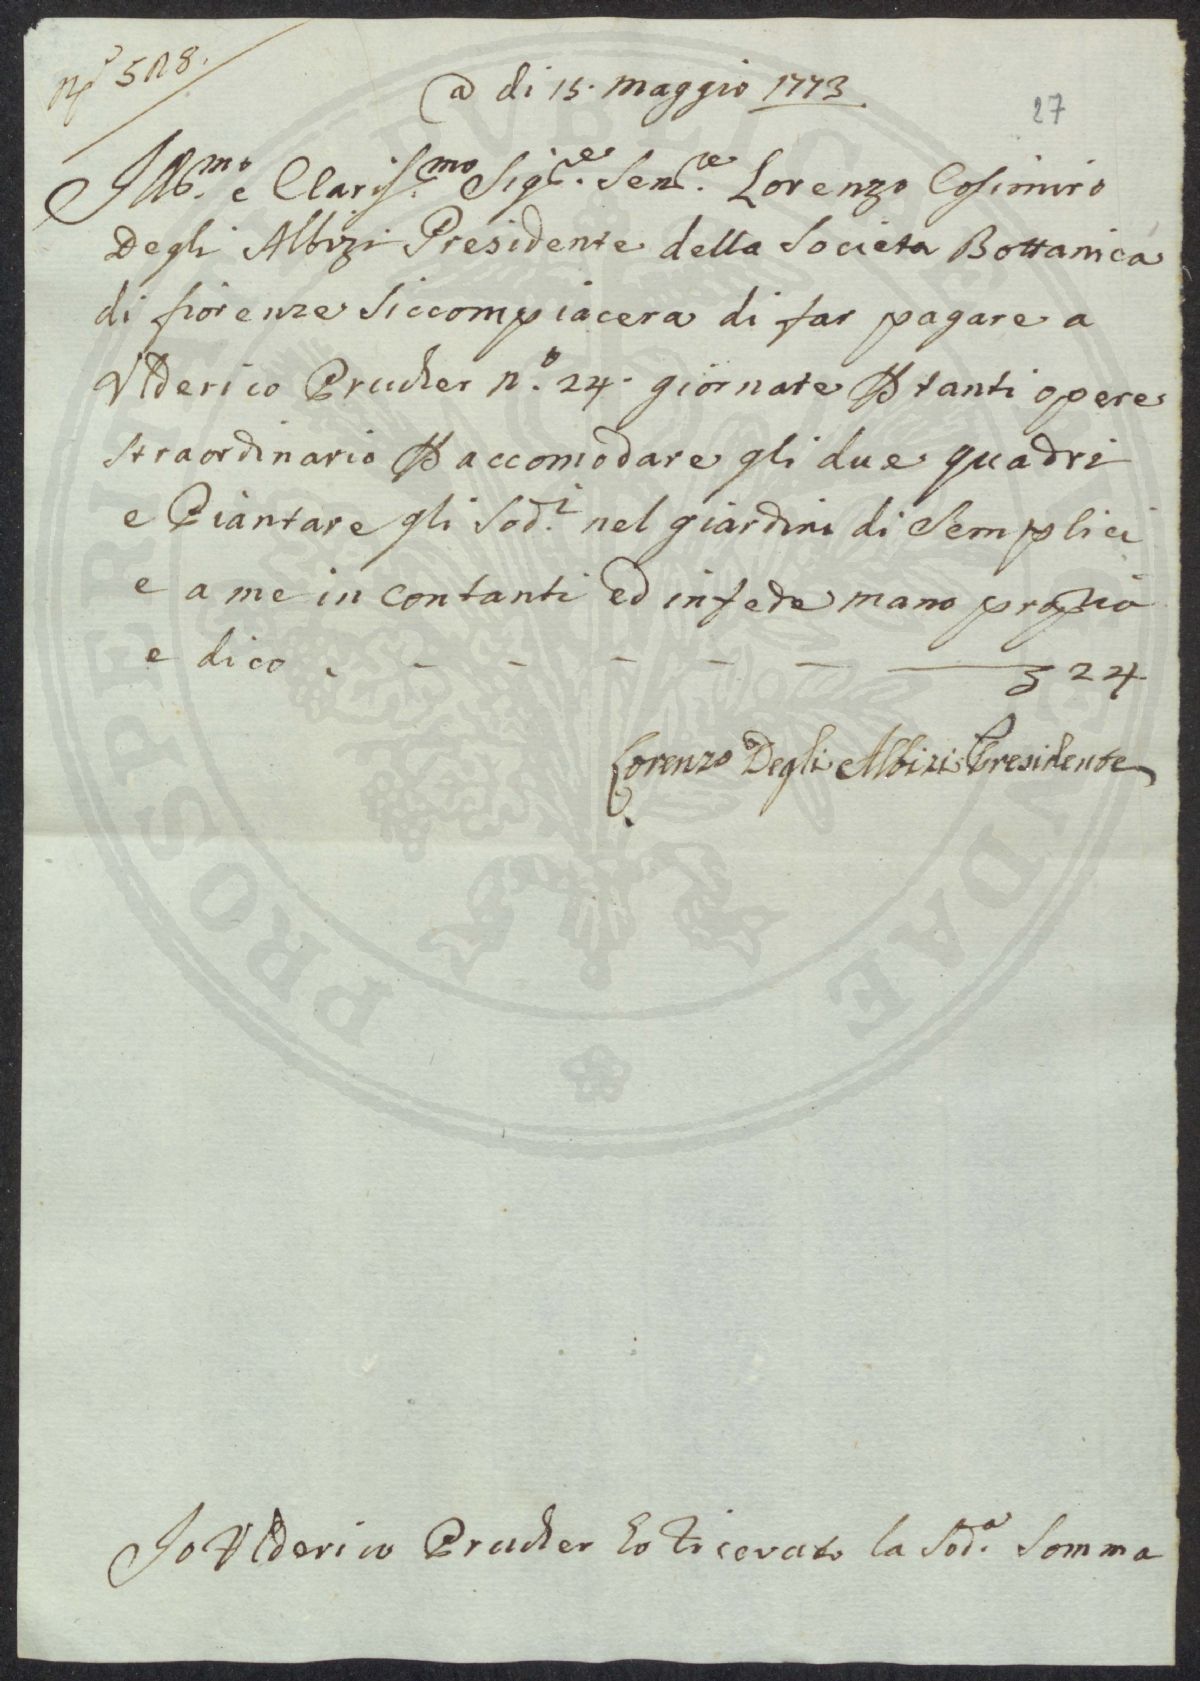 N.º 528.
A di 15. maggio 1773.
27
Ill.mo e Clariss.mo Sig.re Sen.re Lorenzo Cosimiro
Degli Albizi Presidente della Societa Bottanica
di fiorenze Siccompiacera di far pagare a
Ulderico Prucker n.º 24. giornate p tanti opere
straordinario p accomodare gli due quadri
e Piantare gli Sod.i nel giardini di Semplici
e a me in contanti ed in fede mano propria
e dico . - - - - - — 3 24
Lorenzo Degli Albizi Presidente
Io Ulderico Prucker ho ricevuto la Sod.a Somma
PUBLICAE
PROSPERITATI